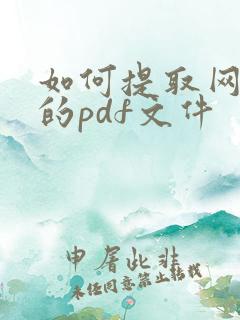 如何提取网
的pdf文件
申屠此非
未经同意禁止转载